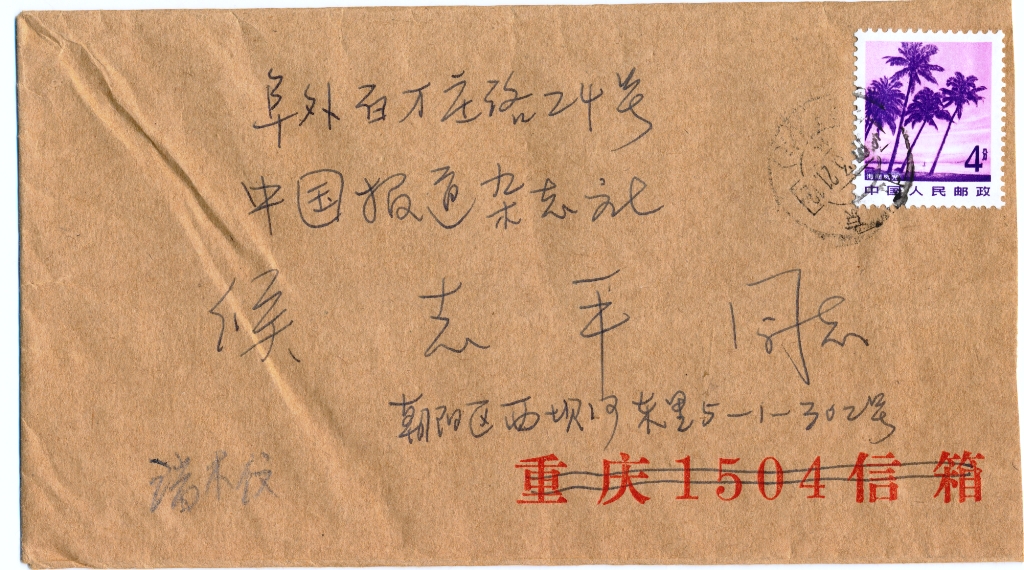 阜外百万庄路24号
中国报道杂志社
侯志平同志
朝阳区西坝河东里5-1-302号
重庆1504信箱
4分
中国人民邮政